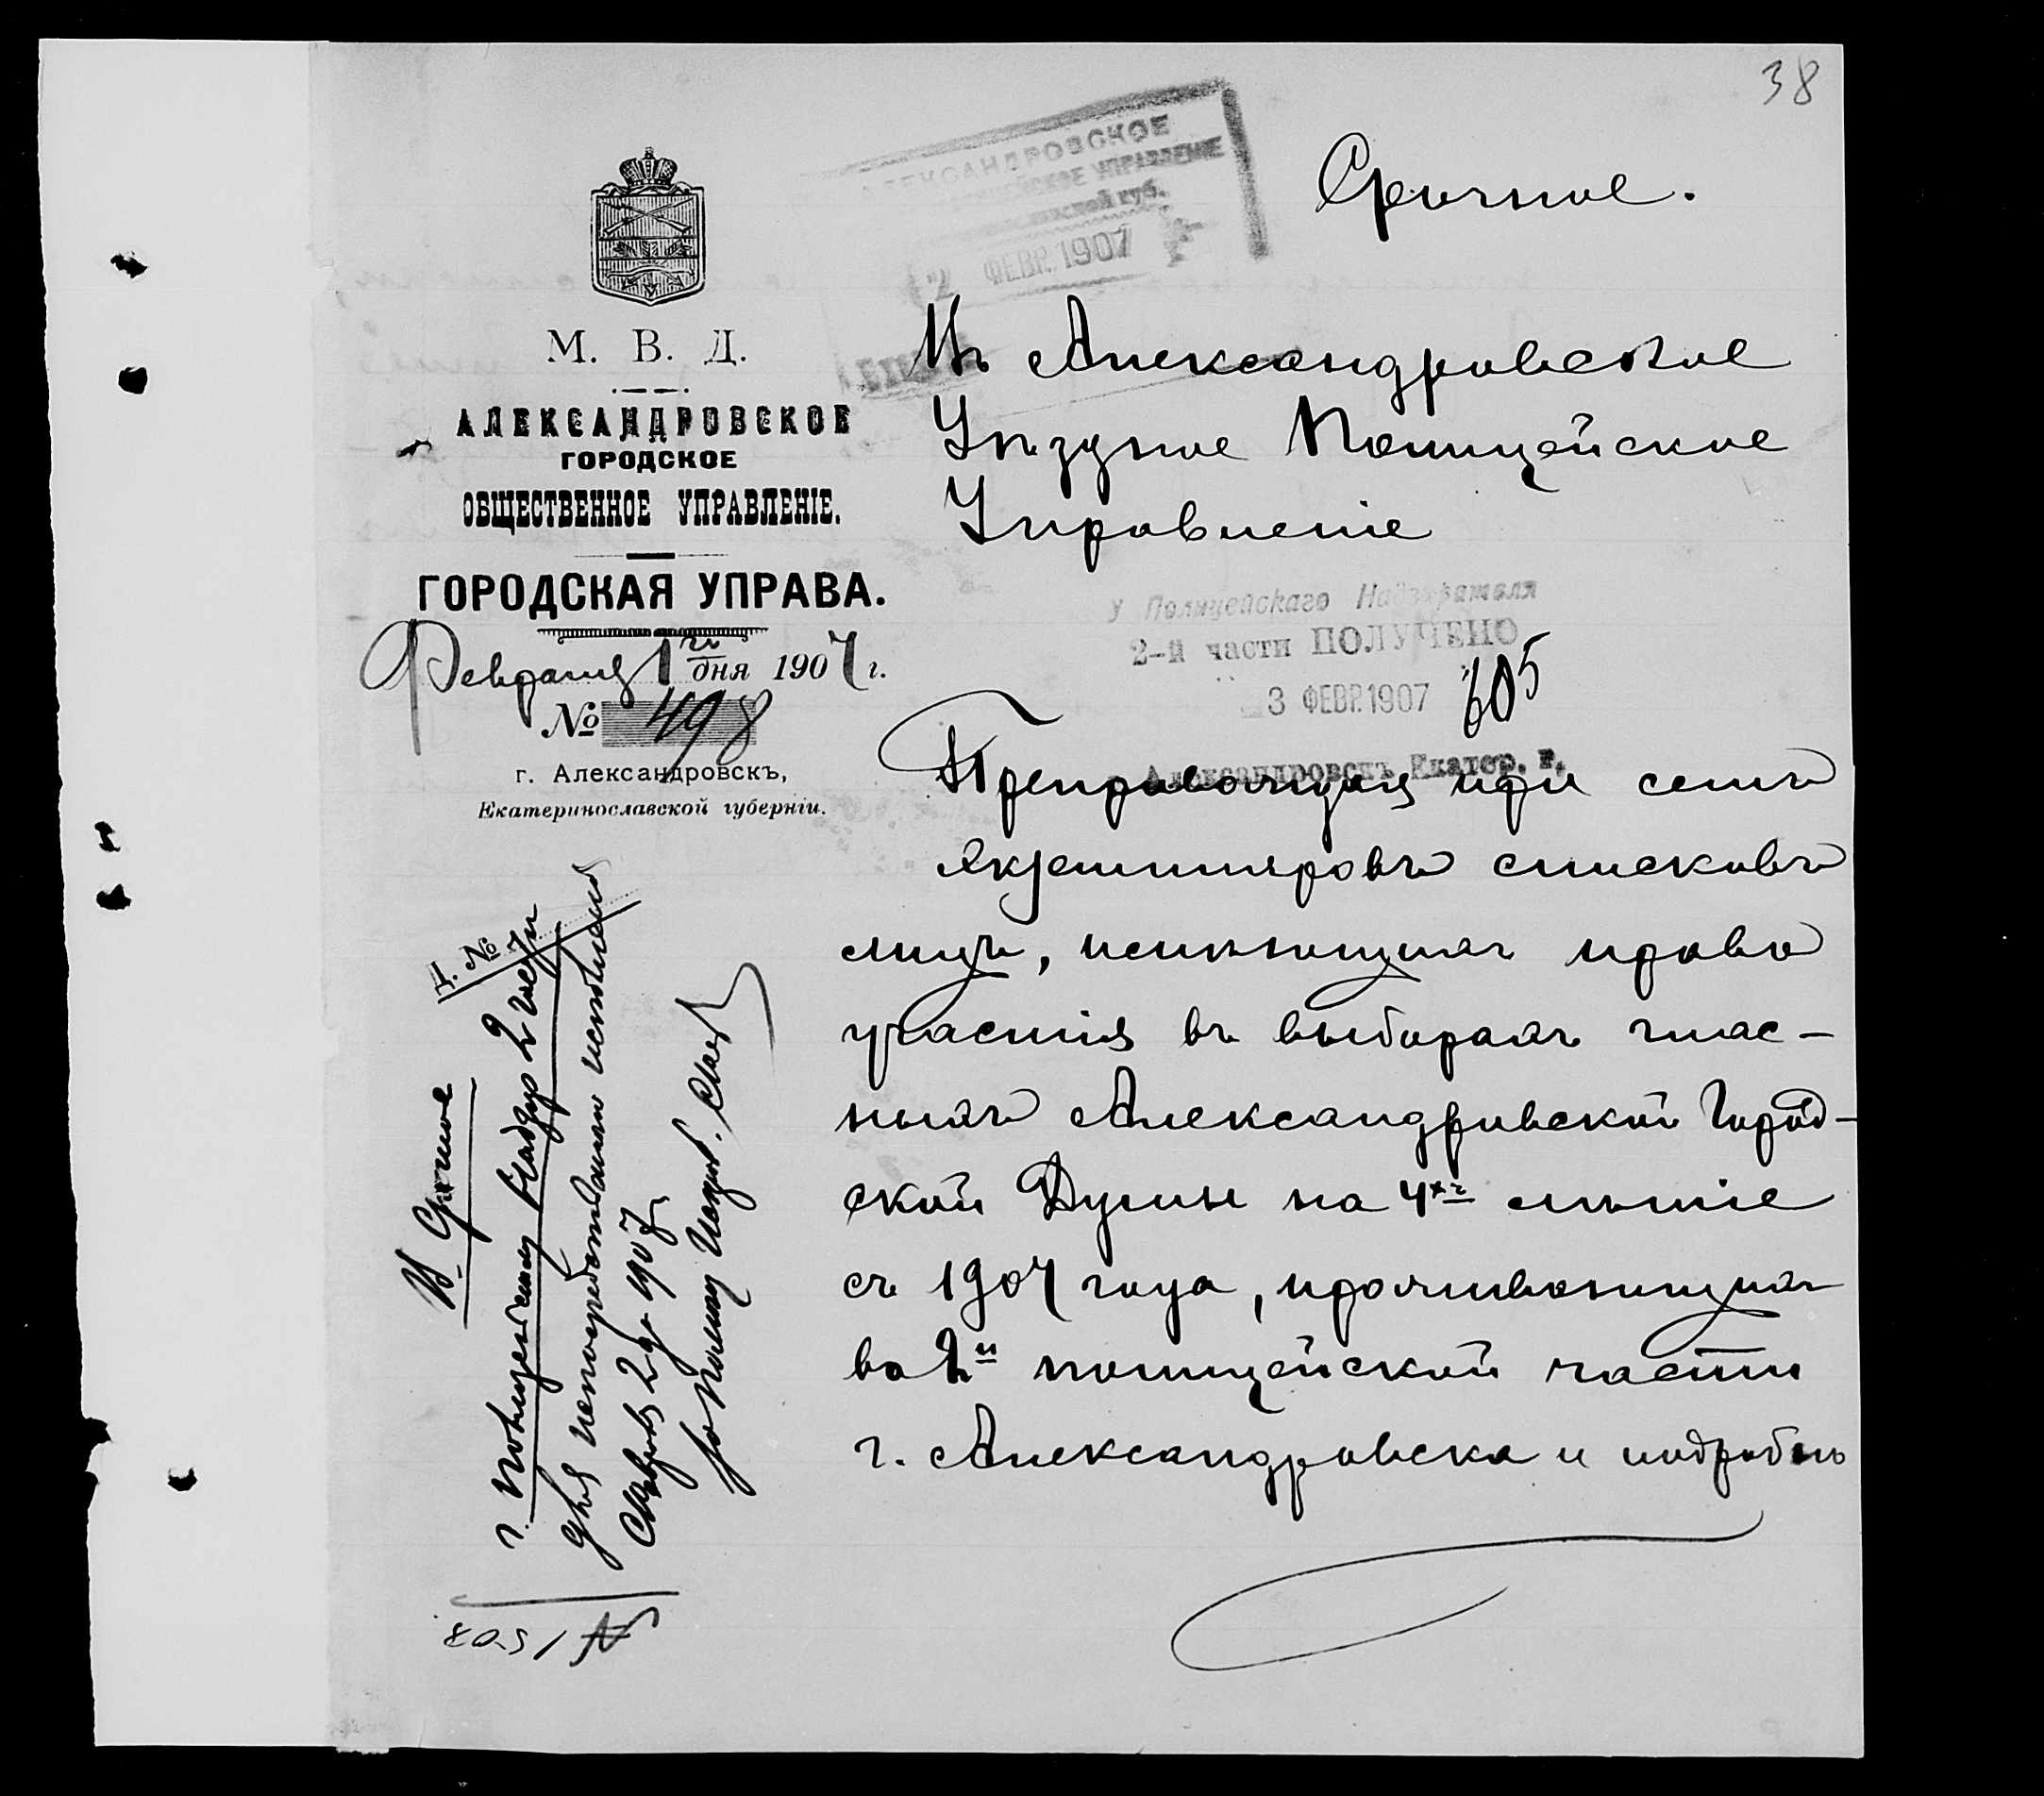 38
АЛЕКСАНДРОВСКОЕ
УПРАВЛЕНІЕ
губ.
2 ФЕВР. 1907
Срочное.
М. В. Д.
АЛЕКСАНДРОВСКОЕ
ГОРОДСКОЕ
ОБЩЕСТВЕННОЕ УПРАВЛЕНІЕ.
ГОРОДСКАЯ УПРАВА.
Февраля 1 го дня 1907 г.
№ 498
г. Александровскъ,
Екатеринославской губерніи.
Въ Александровское
Уѣздное Полицейское
Управленіе
У Полицейскаго Надзирателя
2-й части ПОЛУЧЕНО
3 ФЕВР. 1907 605
Александровскъ Екатер. г.
Препровождая при семъ
экземпляровъ списковъ
лицъ, имѣющихъ право
участія въ выборахъ глас-
ныхъ Александровской Город-
ской Думы на 4хъ лѣтіе
съ 1907 года, проживающихъ
во 2й полицейской части
г. Александровска и подробно
Д. №
В. Срочное
г. Полицейскому Надзир 2 части
для непосредственнаго исполненія
2 дн 1907 г.
за Помощ Исправ.
№ 1503